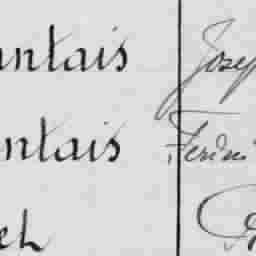 ntais Josep
ntais Ferdi
ch